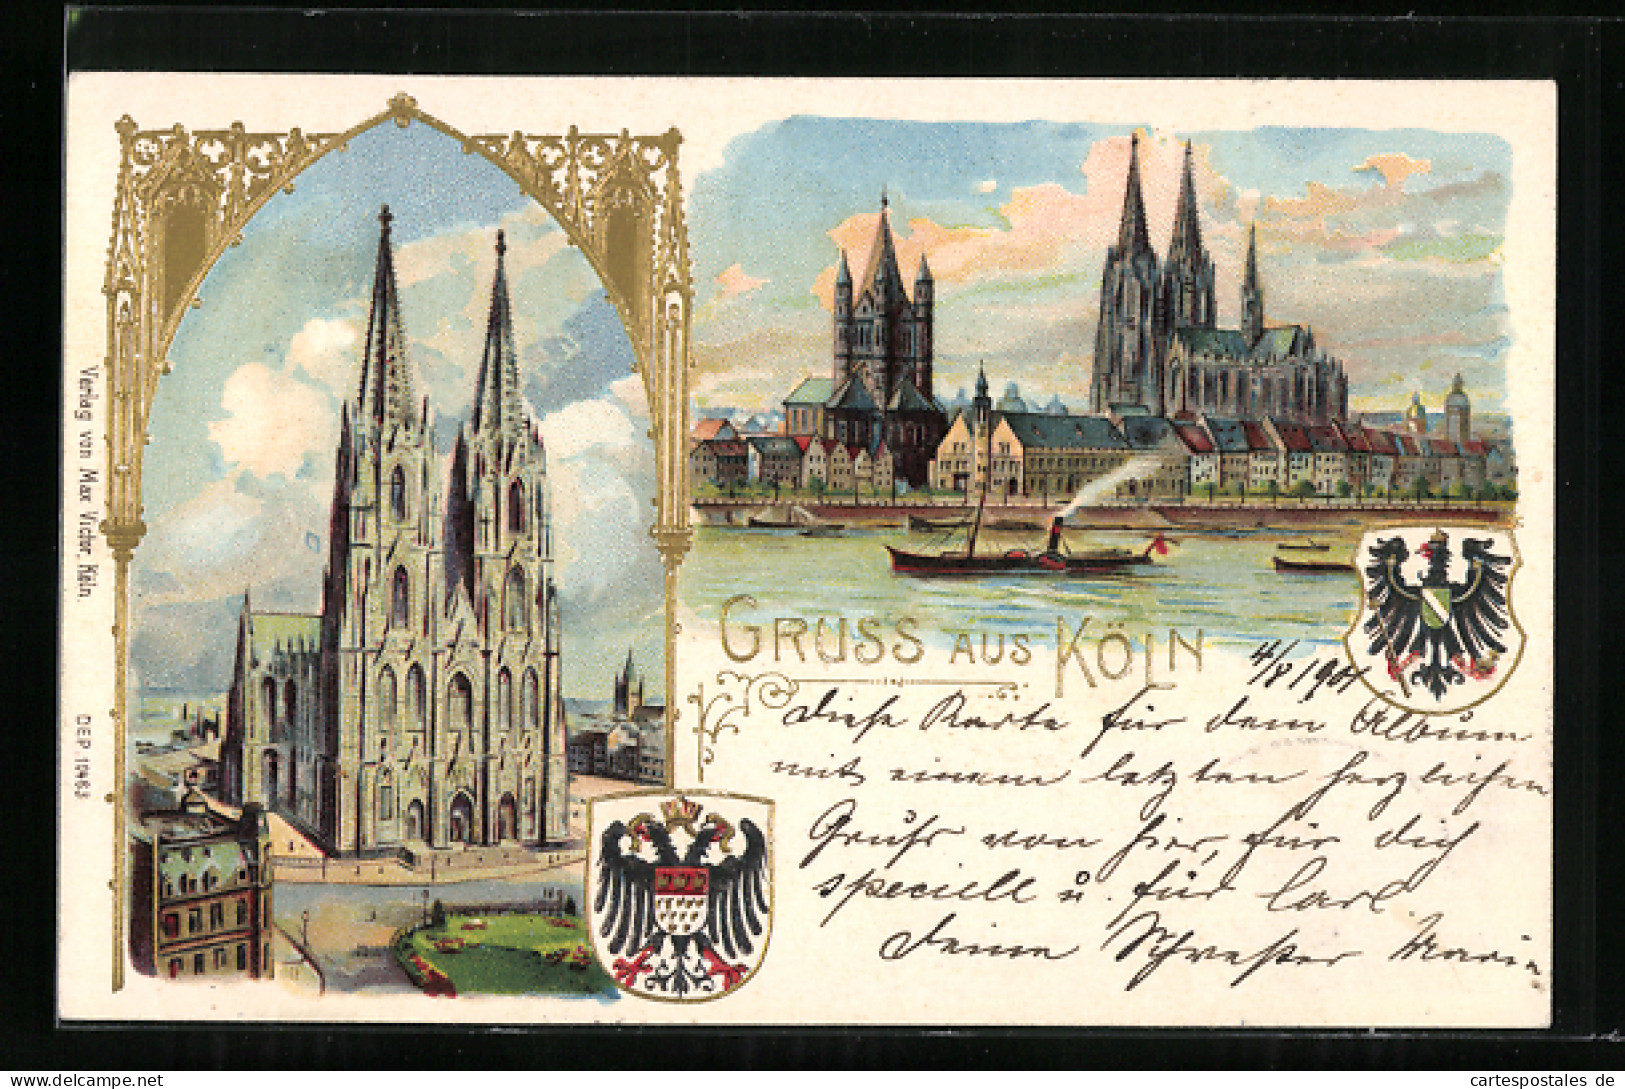 Verlag von Max Victor, Köln.
DEP 10463
GRUSS AUS KÖLN
4/8 1901
Diese Karte für dem Album
mit einem letzten herzlichen
Gruß von hier, für dich
speciell u. für Carl
Deine Schwester Marie
cartespostales de